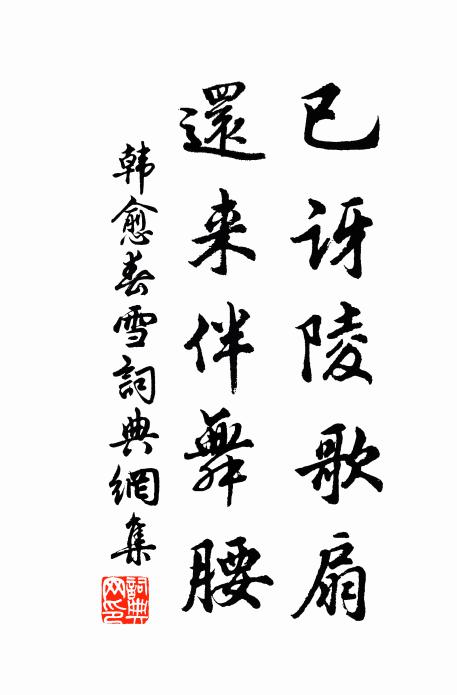 已訝陵歌扇
還来伴舞腰
韩愈春雪詞典網集
詞典网印